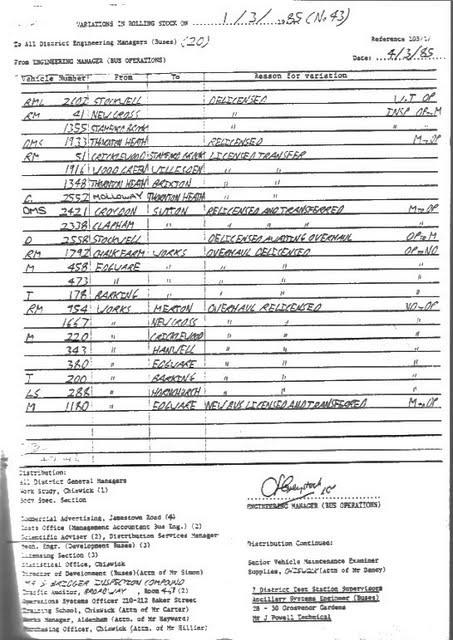 VARIATIONS IN ROLLING STOCK ON 1/3/1985 (No 43)
To All District Engineering Managers (Buses) (20)
Reference 103/1/
From ENGINEERING MANAGER (BUS OPERATIONS)
Date: 4/3/85
Vehicle Number From To Reason for variation
RML 2602 STOCKWELL DELICENSED U.T OP
RM 41 NEW CROSS " INSP OP→M
1355 STAMFORD BROOK " "
OMS 1933 THORNTON HEATH RELICENSED M→OP
RM 51 CRICKLEWOOD STAMFORD BROOK LICENSED TRANSFER
1916 WOOD GREEN WILLESDEN " "
1348 THORNTON HEATH BRIXTON " "
C. 2552 HOLLOWAY THORNTON HEATH " "
OMS 2421 CROYDON SUTTON RELICENSED AND TRANSFERRED M→OP
2338 CLAPHAM " " " "
D 2558 STOCKWELL DELICENSED AWAITING OVERHAUL OP→M
RM 1792 CHALK FARM WORKS OVERHAUL DELICENSED OP→NO
M 458 EDGWARE " " " "
473 " " " " "
T 178 BARKING " " " "
RM 954 WORKS MERTON OVERHAUL RELICENSED NO→OP
1667 " NEW CROSS " " "
M 220 " CRICKLEWOOD " " "
343 " HANWELL " " "
380 " EDGWARE " " "
T 200 " BARKING " " "
LS 288 " HORNCHURCH " " "
M 1180 EDGWARE NEW BUS LICENSED AND TRANSFERRED M→OP
Distribution:
All District General Managers
Work Study, Chiswick (1)
Body Spec. Section
ENGINEERING MANAGER (BUS OPERATIONS)
Commercial Advertising, Jamestown Road (4)
Costs Office (Management Accountant Bus Eng.) (2)
Scientific Adviser (2), Distribution Services Manager
Tech. Engr. (Development Buses) (3)
Licensing Section (3)
Statistical Office, Chiswick
Director of Development (Buses)(Attn of Mr Simon)
BRIDGER INSPECTION COMPOUND
Traffic Auditor, BROADWAY, Room 447 (2)
Operations Systems Officer 210-212 Baker Street
Training School, Chiswick (Attn of Mr Carter)
Works Manager, Aldenham (Attn. of Mr Hayward)
Purchasing Officer, Chiswick (Attn of Mr Hillier)
Distribution Continued:
Senior Vehicle Maintenance Examiner
Supplies, CHISWICK (Attn of Mr Dancy)
7 District Test Station Supervisors
Ancillary Systems Engineer (Buses)
28 - 30 Grosvenor Gardens
Mr J Powell Technical